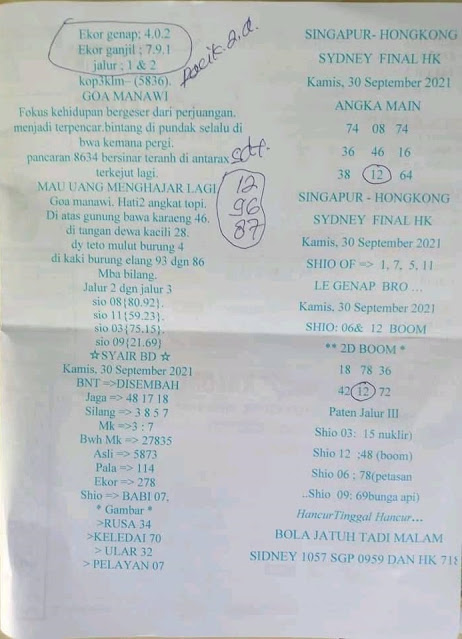 Ekor genap; 4.0.2
Ekor ganjil ; 7.9.1
jalur ; 1 & 2
kop3klm– (5836).
GOA MANAWI
Fokus kehidupan bergeser dari perjuangan.
menjadi terpencar.bintang di pundak selalu di
bwa kemana pergi.
pancaran 8634 bersinar teranh di antarax
terkejut lagi.
MAU UANG MENGHAJAR LAGI
Goa manawi. Hati2 angkat topi.
Di atas gunung bawa karaeng 46.
di tangan dewa kacili 28.
dy teto mulut burung 4
di kaki burung elang 93 dgn 86
Mba bilang.
Jalur 2 dgn jalur 3
sio 08{80.92}.
sio 11{59.23}.
sio 03{75.15}.
sio 09{21.69}
☆SYAIR BD ☆
Kamis, 30 September 2021
BNT =>DISEMBAH
Jaga => 48 17 18
Silang => 3 8 5 7
Mk =>3 : 7
Bwh Mk => 27835
Asli => 5873
Pala => 114
Ekor => 278
Shio => BABI 07,
* Gambar *
>RUSA 34
>KELEDAI 70
> ULAR 32
> PELAYAN 07
12
96
87
SINGAPUR- HONGKONG
SYDNEY FINAL HK
Kamis, 30 September 2021
ANGKA MAIN
74 08 74
36 46 16
38 12 64
SINGAPUR - HONGKONG
SYDNEY FINAL HK
Kamis, 30 September 2021
SHIO OF => 1, 7, 5, 11
LE GENAP BRO ...
Kamis, 30 September 2021
SHIO: 06& 12 BOOM
** 2D BOOM *
18 78 36
42 12 72
Paten Jalur III
Shio 03: 15 nuklir)
Shio 12 ;48 (boom)
Shio 06 ; 78(petasan
..Shio 09: 69bunga api)
HancurTinggal Hancur…
BOLA JATUH TADI MALAM
SIDNEY 1057 SGP 0959 DAN HK 718